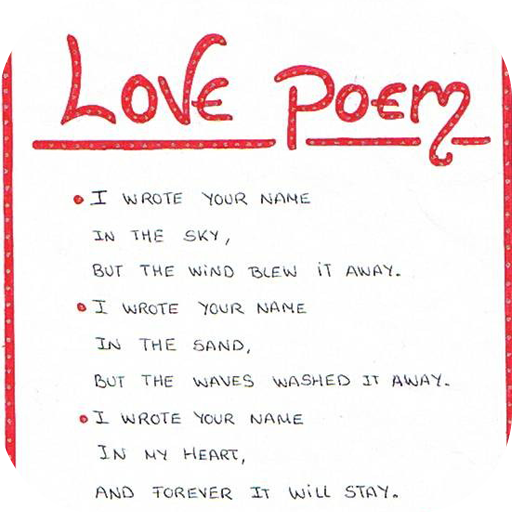 LOVE POEM
• I WROTE YOUR NAME
IN THE SKY,
BUT THE WIND BLEW IT AWAY.
• I WROTE YOUR NAME
IN THE SAND,
BUT THE WAVES WASHED IT AWAY.
• I WROTE YOUR NAME
IN MY HEART,
AND FOREVER IT WILL STAY.